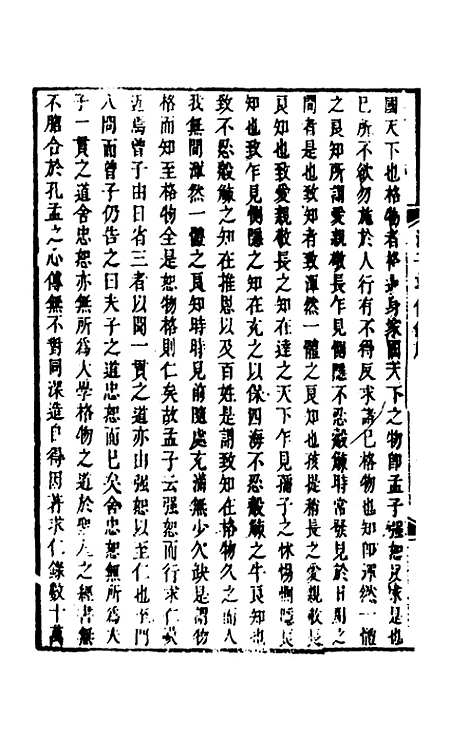 國天下也格物者格此身家國天下之物即孟子强恕反求是也
已所不欲勿施於人行有不得反求諸已格物也知即渾然一體
之良知所謂愛親敬長乍見惻隱不忍觳觫時常發見於日用之
間者是也致知者致渾然一體之良知也孩提稍長之愛親敬長
良知也致愛親敬長之知在達之天下乍見孺子之怵惕惻隱良
知也致乍見惻隱之知在擴充之以保四海不忍觳觫之牛良知也
致不忍觳觫之知在推恩以及百姓是謂致知在格物久之而人
我無間渾然一體之良知時時見前隨處充滿無少欠缺是謂物
格而知至格物全是恕物格則仁矣故孟子云强恕而行求仁莫
近焉曾子由日省三者以聞一貫之道亦由强恕以至仁也至門
人問而曾子仍告之曰夫子之道忠恕而已矣舍忠恕無所爲夫
子一貫之道舍忠恕亦無所爲大學格物之道於聖人之經書無
不脗合於孔孟之心傳無不對同深造自得因著求仁錄數十萬